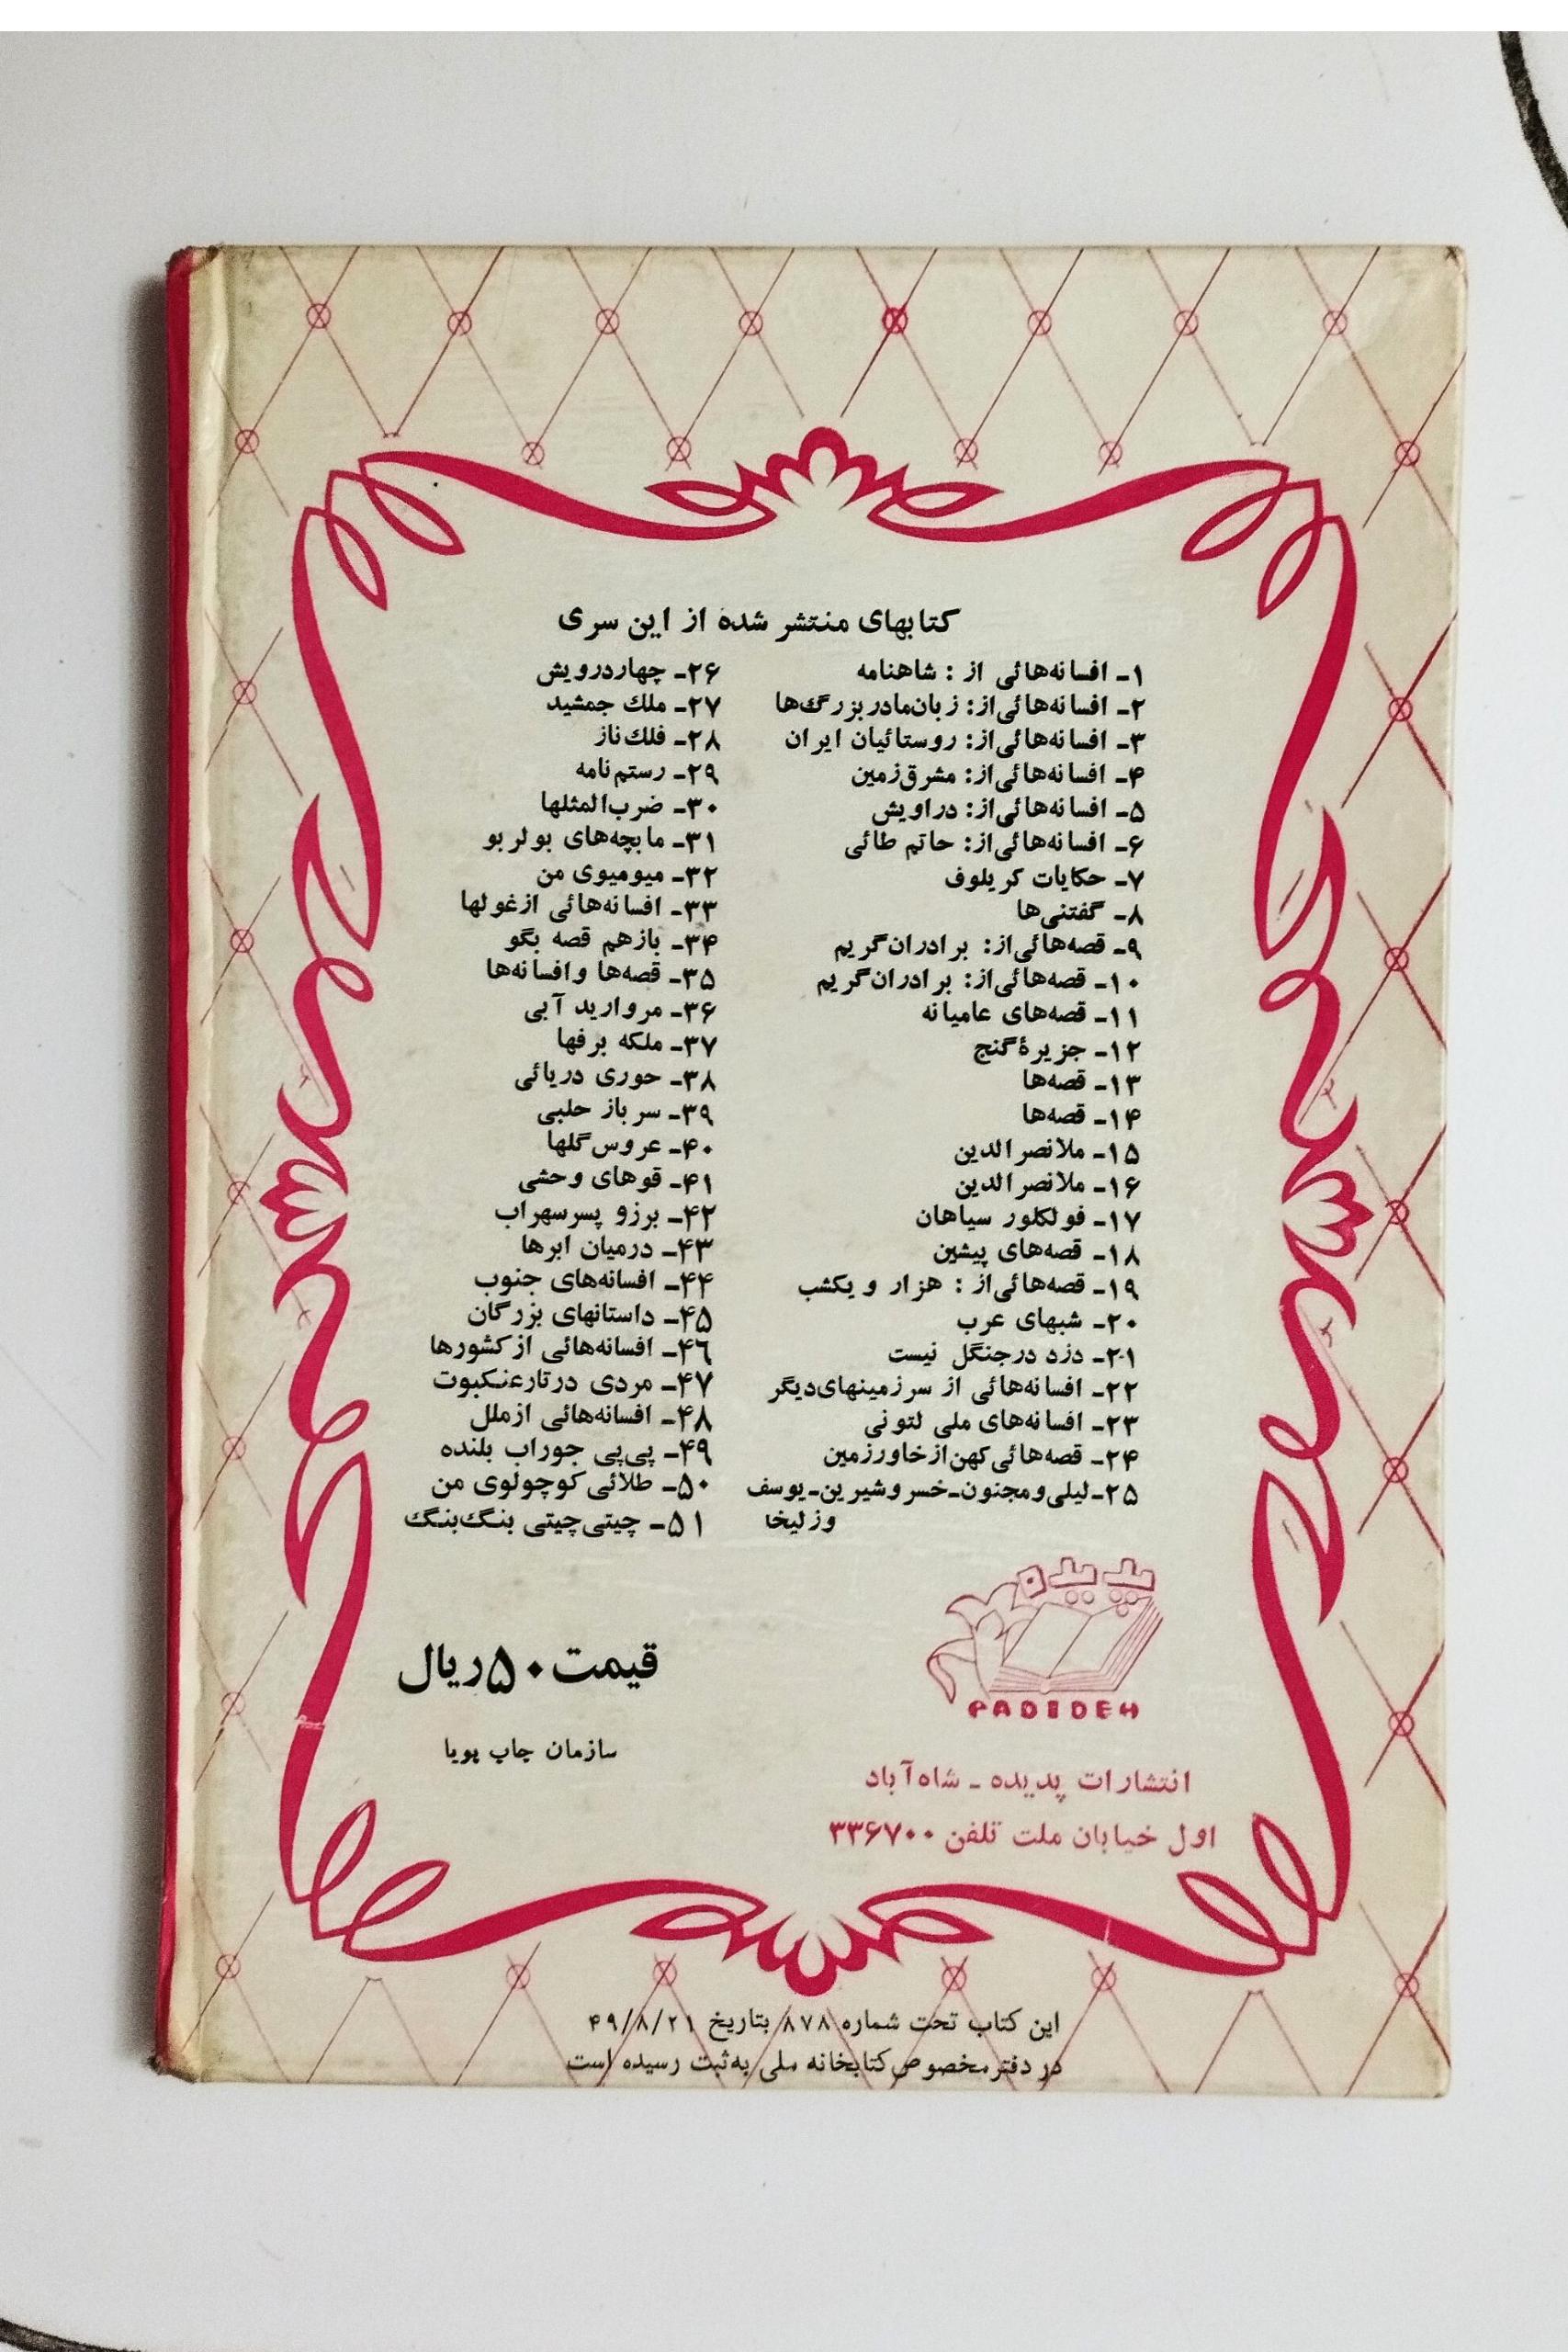 کتابهای منتشر شده از این سری
۱ـ افسانه‌هائی از : شاهنامه
۲ـ افسانه‌هائی‌از: زبان‌مادربزرگ‌ها
۳ـ افسانه‌هائی‌از: روستائیان ایران
۴ـ افسانه‌هائی‌از: مشرق‌زمین
۵ـ افسانه‌هائی‌از: دراویش
۶ـ افسانه‌هائی‌از: حاتم طائی
۷ـ حکایات کریلوف
۸ـ گفتنی‌ها
۹ـ قصه‌هائی‌از: برادران‌گریم
۱۰ـ قصه‌هائی‌از: برادران‌گریم
۱۱ـ قصه‌های عامیانه
۱۲ـ جزیرهٔ گنج
۱۳ـ قصه‌ها
۱۴ـ قصه‌ها
۱۵ـ ملانصرالدین
۱۶ـ ملانصرالدین
۱۷ـ فولکلور سیاهان
۱۸ـ قصه‌های پیشین
۱۹ـ قصه‌هائی‌از : هزار و یکشب
۲۰ـ شبهای عرب
۲۱ـ دزد درجنگل نیست
۲۲ـ افسانه‌هائی از سرزمینهای‌دیگر
۲۳ـ افسانه‌های ملی لتونی
۲۴ـ قصه‌هائی‌کهن‌ازخاورزمین
۲۵ـ لیلی‌ومجنون‌ـ‌خسروشیرین‌ـ‌یوسف
وزلیخا
۲۶ـ چهاردرویش
۲۷ـ ملک جمشید
۲۸ـ فلک‌ناز
۲۹ـ رستم‌نامه
۳۰ـ ضرب‌المثلها
۳۱ـ مابچه‌های بولربو
۳۲ـ میومیوی من
۳۳ـ افسانه‌هائی ازغولها
۳۴ـ بازهم قصه بگو
۳۵ـ قصه‌ها وافسانه‌ها
۳۶ـ مروارید آبی
۳۷ـ ملکه برفها
۳۸ـ حوری دریائی
۳۹ـ سرباز حلبی
۴۰ـ عروس‌گلها
۴۱ـ قوهای وحشی
۴۲ـ برزو پسرسهراب
۴۳ـ درمیان ابرها
۴۴ـ افسانه‌های جنوب
۴۵ـ داستانهای بزرگان
۴۶ـ افسانه‌هائی ازکشورها
۴۷ـ مردی درتارعنکبوت
۴۸ـ افسانه‌هائی ازملل
۴۹ـ پی‌پی جوراب بلنده
۵۰ـ طلائی کوچولوی من
۵۱ـ چیتی‌چیتی بنگ‌بنگ
پدیده
PADIDEH
انتشارات پدیده ـ شاه‌آباد
اول خیابان ملت تلفن ۳۳۶۷۰۰
قیمت ۵۰ ریال
سازمان چاپ پویا
این کتاب تحت شماره ۸۷۸ بتاریخ ۴۹/۸/۲۱
در دفتر مخصوص کتابخانه ملی به‌ثبت رسیده است